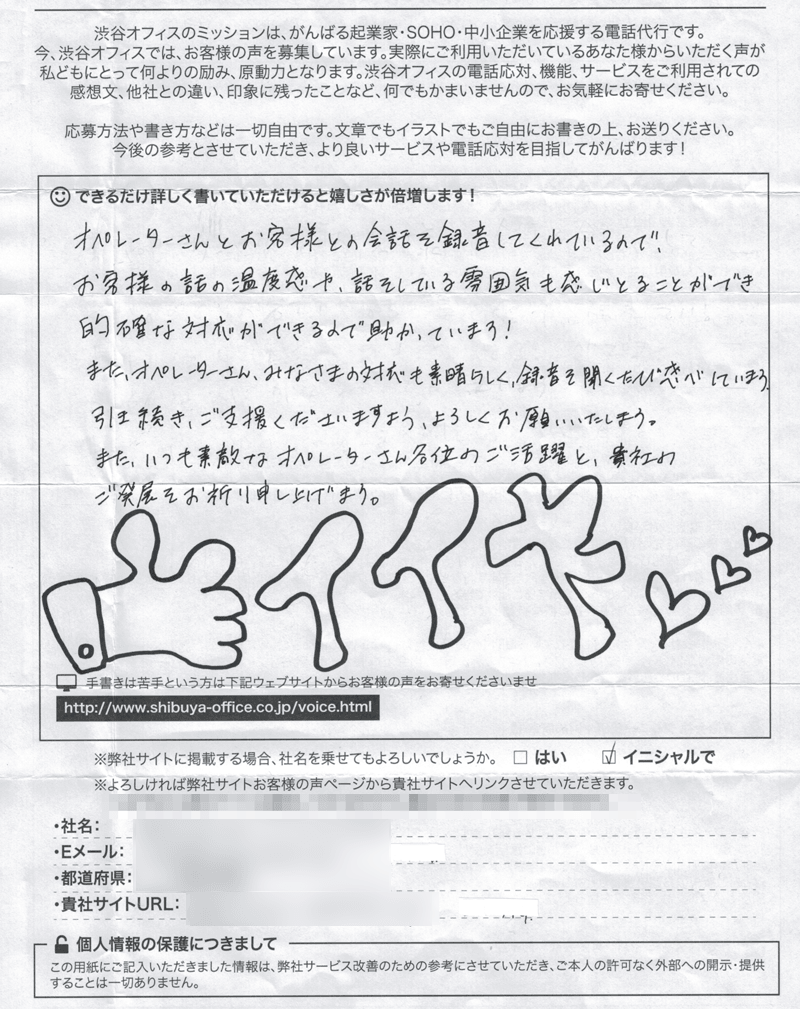 渋谷オフィスのミッションは、がんばる起業家・SOHO・中小企業を応援する電話代行です。
今、渋谷オフィスでは、お客様の声を募集しています。実際にご利用いただいているあなた様からいただく声が
私どもにとって何よりの励み、原動力となります。渋谷オフィスの電話応対、機能、サービスをご利用されての
感想文、他社との違い、印象に残ったことなど、何でもかまいませんので、お気軽にお寄せください。
応募方法や書き方などは一切自由です。文章でもイラストでもご自由にお書きの上、お送りください。
今後の参考とさせていただき、より良いサービスや電話応対を目指してがんばります！
できるだけ詳しく書いていただけると嬉しさが倍増します！
オペレーターさんとお客様との会話を録音してくれているので、
お客様の話の温度感や、話をしている雰囲気も感じとることができ
的確な対応ができるので助かっています！
また、オペレーターさん、みなさまの対応も素晴らしく、録音を聞くたび感心しています。
引き続き、ご支援くださいますよう、よろしくお願いいたします。
また、いつも素敵なオペレーターさん各位のご活躍と、貴社の
ご発展をお祈り申し上げます。
イイヤ
手書きは苦手という方は下記ウェブサイトからお客様の声をお寄せくださいませ
http://www.shibuya-office.co.jp/voice.html
※弊社サイトに掲載する場合、社名を乗せてもよろしいでしょうか。 □ はい ☑ イニシャルで
※よろしければ弊社サイトお客様の声ページから貴社サイトへリンクさせていただきます。
・社名：
・Eメール：
・都道府県：
・貴社サイトURL：
個人情報の保護につきまして
この用紙にご記入いただきました情報は、弊社サービス改善のための参考にさせていただき、ご本人の許可なく外部への開示・提供
することは一切ありません。